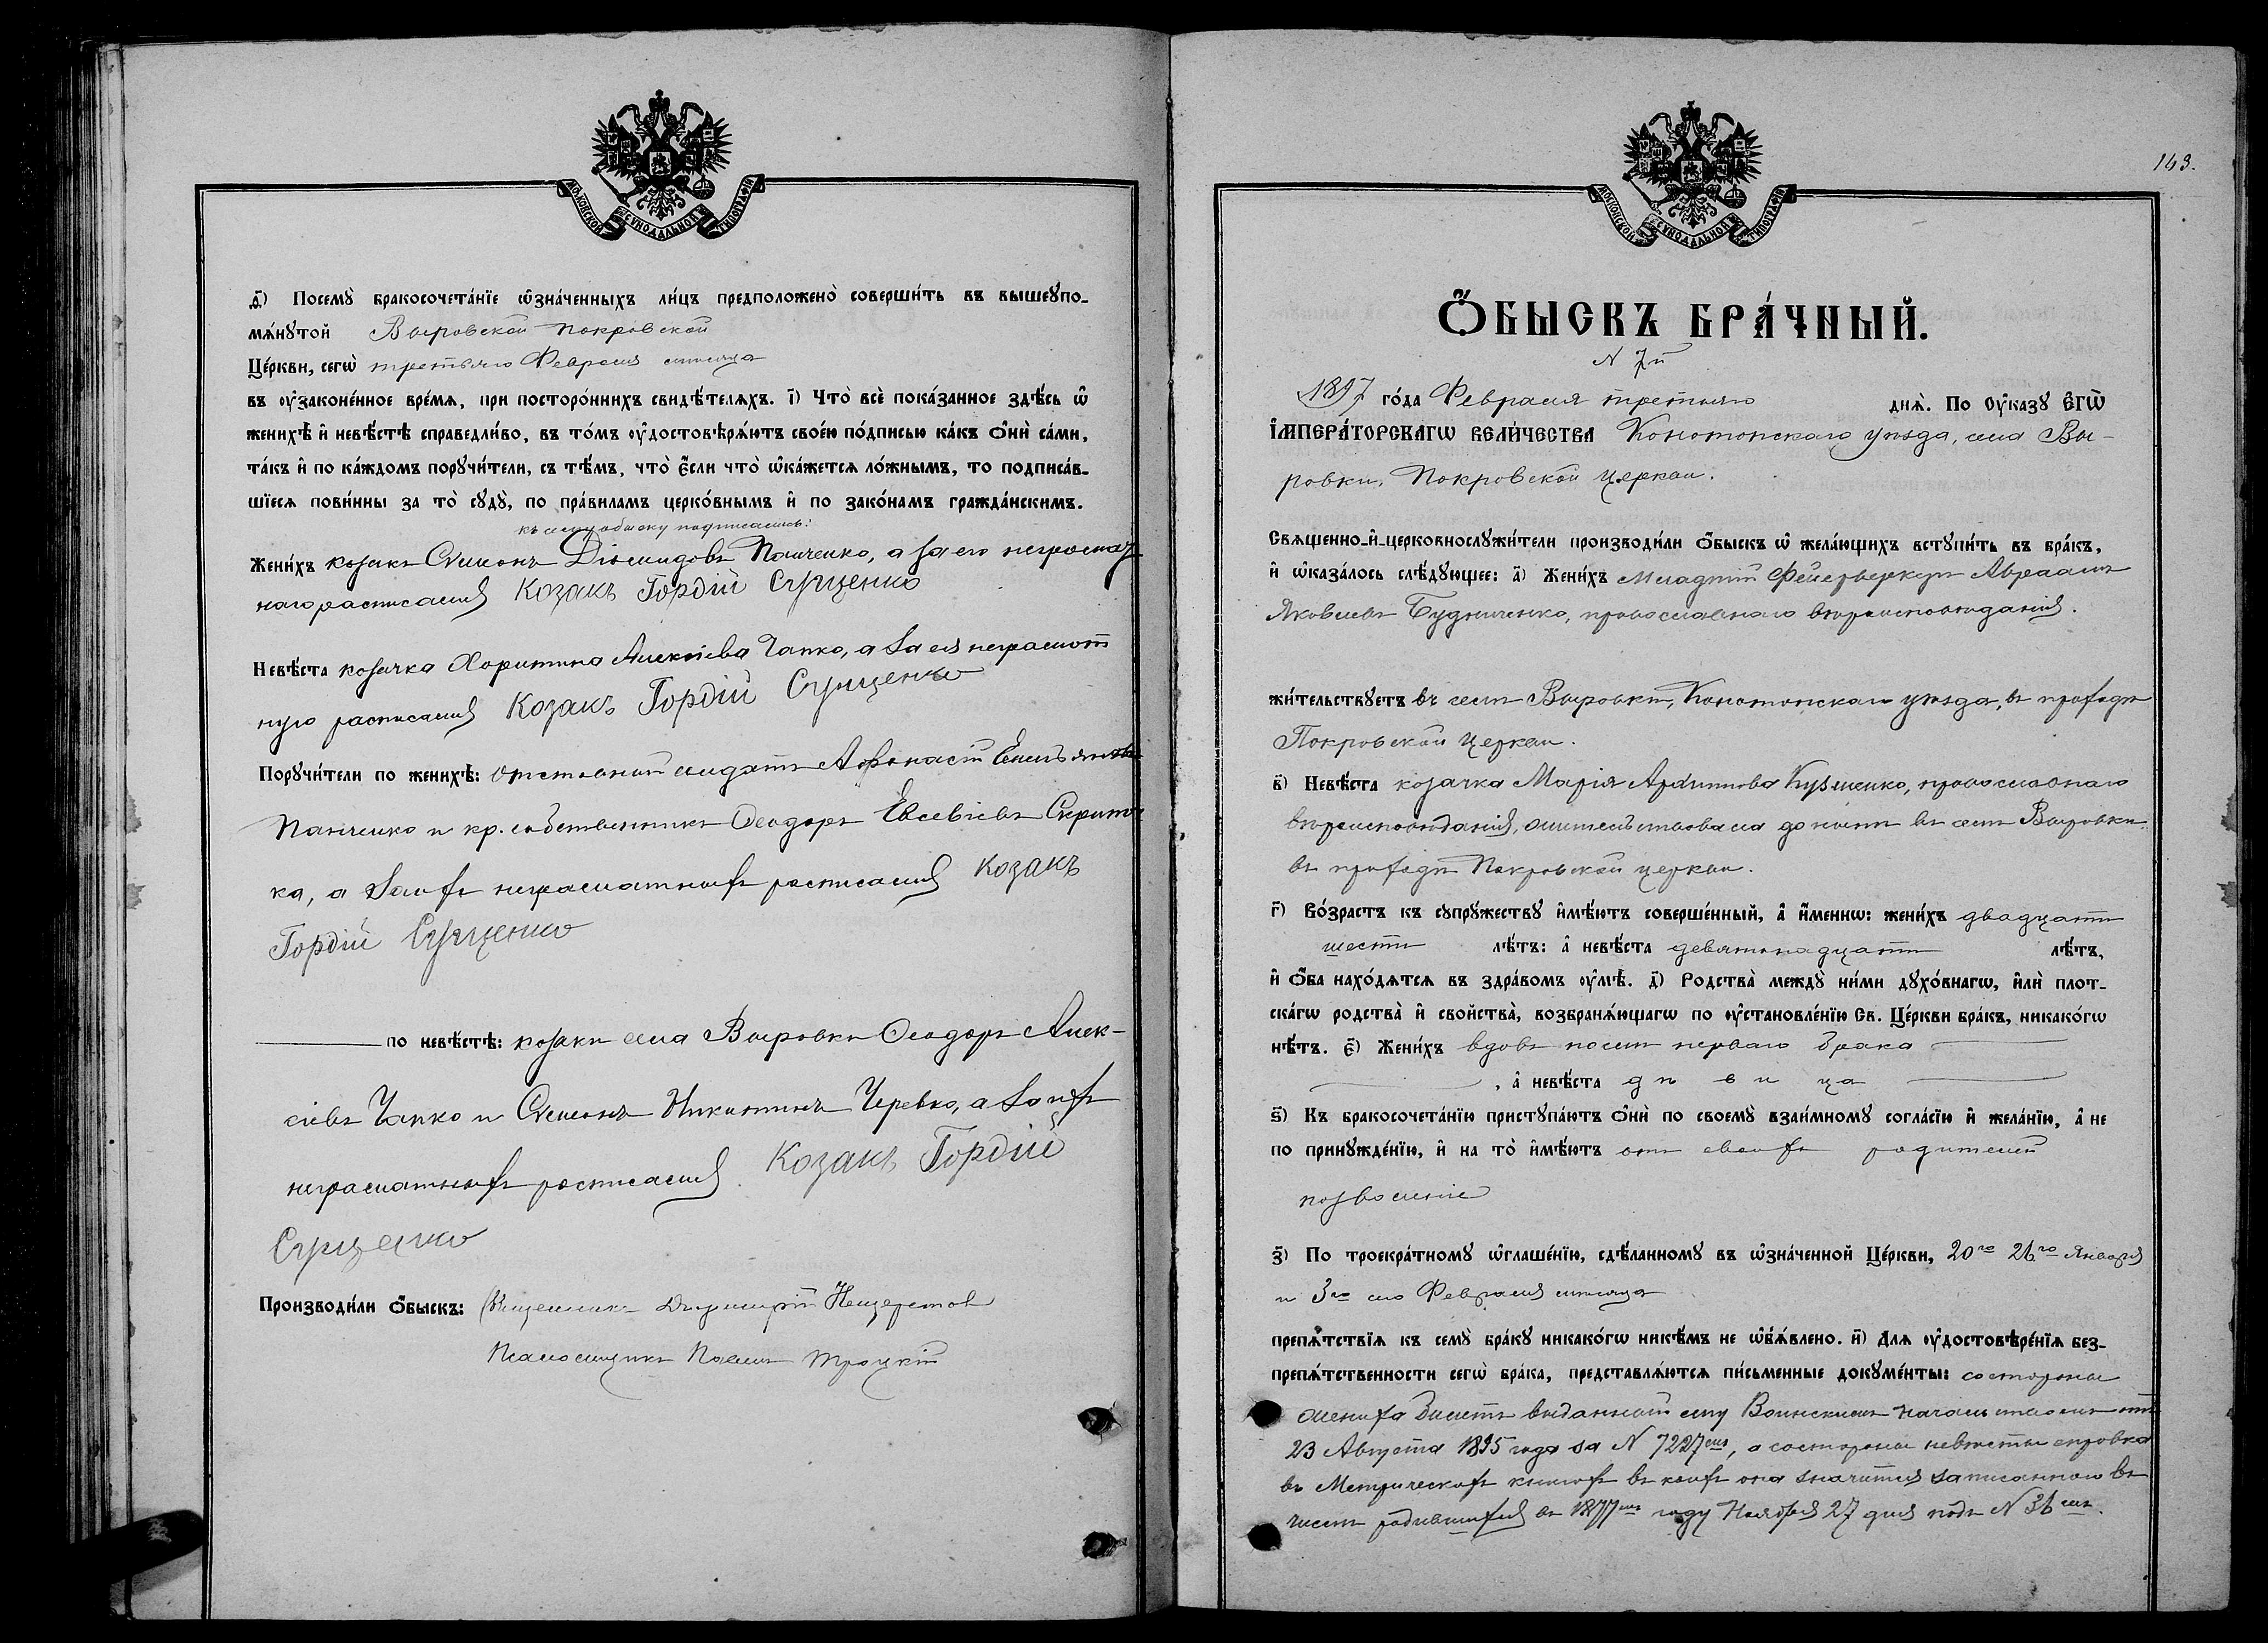 МОСКОВСКОЙ СѴНОДАЛЬНОЙ ТИПОГРАФІИ
д҃) Посемꙋ̀ бракосочета́нїе ѡ҆зна́ченныхъ ли́цъ предположено̀ соверши́ть въ вышеꙋпо-
мѧ́нꙋтой Выровской Покровской
Це́ркви, сегѡ̀ третьяго Февраля мѣсяца
въ ᲂу҆законе́нное вре́мѧ, при посторо́ннихъ свидѣ́телѧхъ. і҃) Что̀ всѐ пока́занное здѣ́сь ѡ҆
женихѣ̀ и҆ невѣ́стѣ справедли́во, въ то́мъ ᲂу҆достовѣрѧ́ютъ свое́ю по́дписью ка́къ ѻ҆нѝ са́ми,
та́къ и҆ по ка́ждомъ порꙋчи́тели, съ тѣ́мъ, что̀ є҆́сли что̀ ѡ҆ка́жетсѧ ло́жнымъ, то подписа́в-
шїесѧ пови́нны за то̀ сꙋдꙋ̀, по пра́виламъ церко́внымъ и҆ по зако́намъ гражда́нскимъ.
къ сему обыску подписались:
Жени́хъ козакъ Симонъ Діомидовъ Панченко, а за его неграмот
наго расписался Козакъ Гордій Сущенко
Невѣ́ста козачка Харитина Алексіева Чапко, а за ея неграмот
ную расписался Козакъ Гордій Сущенко
Порꙋчи́тели по женихѣ̀: отставной солдатъ Афанасій Емельяновъ
Панченко и кр. собственникъ Ѳеодоръ Евсевіевъ Скрипч
ка, а за ихъ неграматныхъ росписался Козакъ
Гордій Сущенко
по невѣ́стѣ: козаки села Выровки Ѳеодоръ Алек-
сіевъ Чапко и Симонъ Никитинъ Черевко, а за ихъ
неграматныхъ росписался Козакъ Гордій
Сущенко
Производи́ли ѻ҆́быскъ: Священникъ Димитрій
Псаломщикъ Павелъ Троцкій
163.
МОСКОВСКОЙ СѴНОДАЛЬНОЙ ТИПОГРАФІИ
Ѻ҆́БЫСКЪ БРА́ЧНЫЙ.
N 7й
1897 го́да Февраля третьяго днѧ̀. По Оу҆ка́зꙋ Є҆ГѠ̀
І҆МПЕРА́ТОРСКАГѠ ВЕЛИ́ЧЕСТВА Конотопскаго уѣзда, села Вы-
ровки, Покровской церкви.
Свѧщенно-и҆-церковнослꙋжи́тели производи́ли ѻ҆́быскъ ѡ҆ жела́ющихъ встꙋпи́ть въ бра́къ,
и҆ ѡ҆каза́лось слѣ́дꙋющее: а҃) Жени́хъ Младшій Фейерверкеръ Авраамъ
Яковлевъ Будниченко, православнаго вѣроисповѣданія.
жи́тельствꙋетъ въ селѣ Выровкѣ, Конотопскаго уѣзда, въ приходѣ
Покровской церкви.
в҃) Невѣ́ста козачка Марія Архиппова Кузменко, православнаго
вѣроисповѣданія, жительствовала до нынѣ въ селѣ Выровкѣ
въ приходѣ Покровской церкви.
г҃) Во́зрастъ къ сꙋпрꙋ́жествꙋ и҆мѣ́ютъ соверше́нный, а҆ и҆́меннѡ: жени́хъ двадцати
шести лѣ́тъ: а҆ невѣ́ста девятнадцати лѣ́тъ,
и҆ ѻ҆́ба нахо́дѧтсѧ въ здра́вомъ ᲂу҆мѣ̀. д҃) Родства̀ междꙋ̀ ни́ми дꙋхо́внагѡ, и҆лѝ плот-
ска́гѡ родства̀ и҆ сво́йства̀, возбранѧ́ющагѡ по ᲂу҆становле́нїю Св. Це́ркви бра́къ, никако́гѡ
нѣ́тъ. є҃) Жени́хъ вдовъ послѣ перваго брака
, а҆ невѣ́ста дѣвица
ѕ҃) Къ бракосочета́нїю пристꙋпа́ютъ ѻ҆нѝ по своемꙋ̀ взаи́мномꙋ согла́сїю и҆ жела́нїю, а҆ не
по принꙋжде́нїю, и҆ на то̀ и҆мѣ́ютъ отъ своихъ родителей
позволеніе
з҃) По троекра́тномꙋ ѡ҆глаше́нїю, сдѣ́ланномꙋ въ ѡ҆зна́ченной Це́ркви, 20го 26го Января
и 3го сего Февраля мѣсяца
препѧ́тствїѧ къ семꙋ̀ бра́кꙋ никако́гѡ никѣ́мъ не ѡ҆б̾ѧ́влено. и҃) Для ᲂу҆достовѣре́нїѧ без-
препѧ́тственности сегѡ̀ бра́ка, представлѧ́ютсѧ пи́сьменные докꙋме́нты: со стороны
жениха билетъ выданный ему Воинскимъ начальникомъ отъ
23 Августа 1895 года за N 7227мъ, а со стороны невѣсты справка
въ Метрическихъ книгахъ въ коихъ она значится записанною въ
числѣ родившихся въ 1877мъ году Ноября 27 дня подъ N 36мъ.